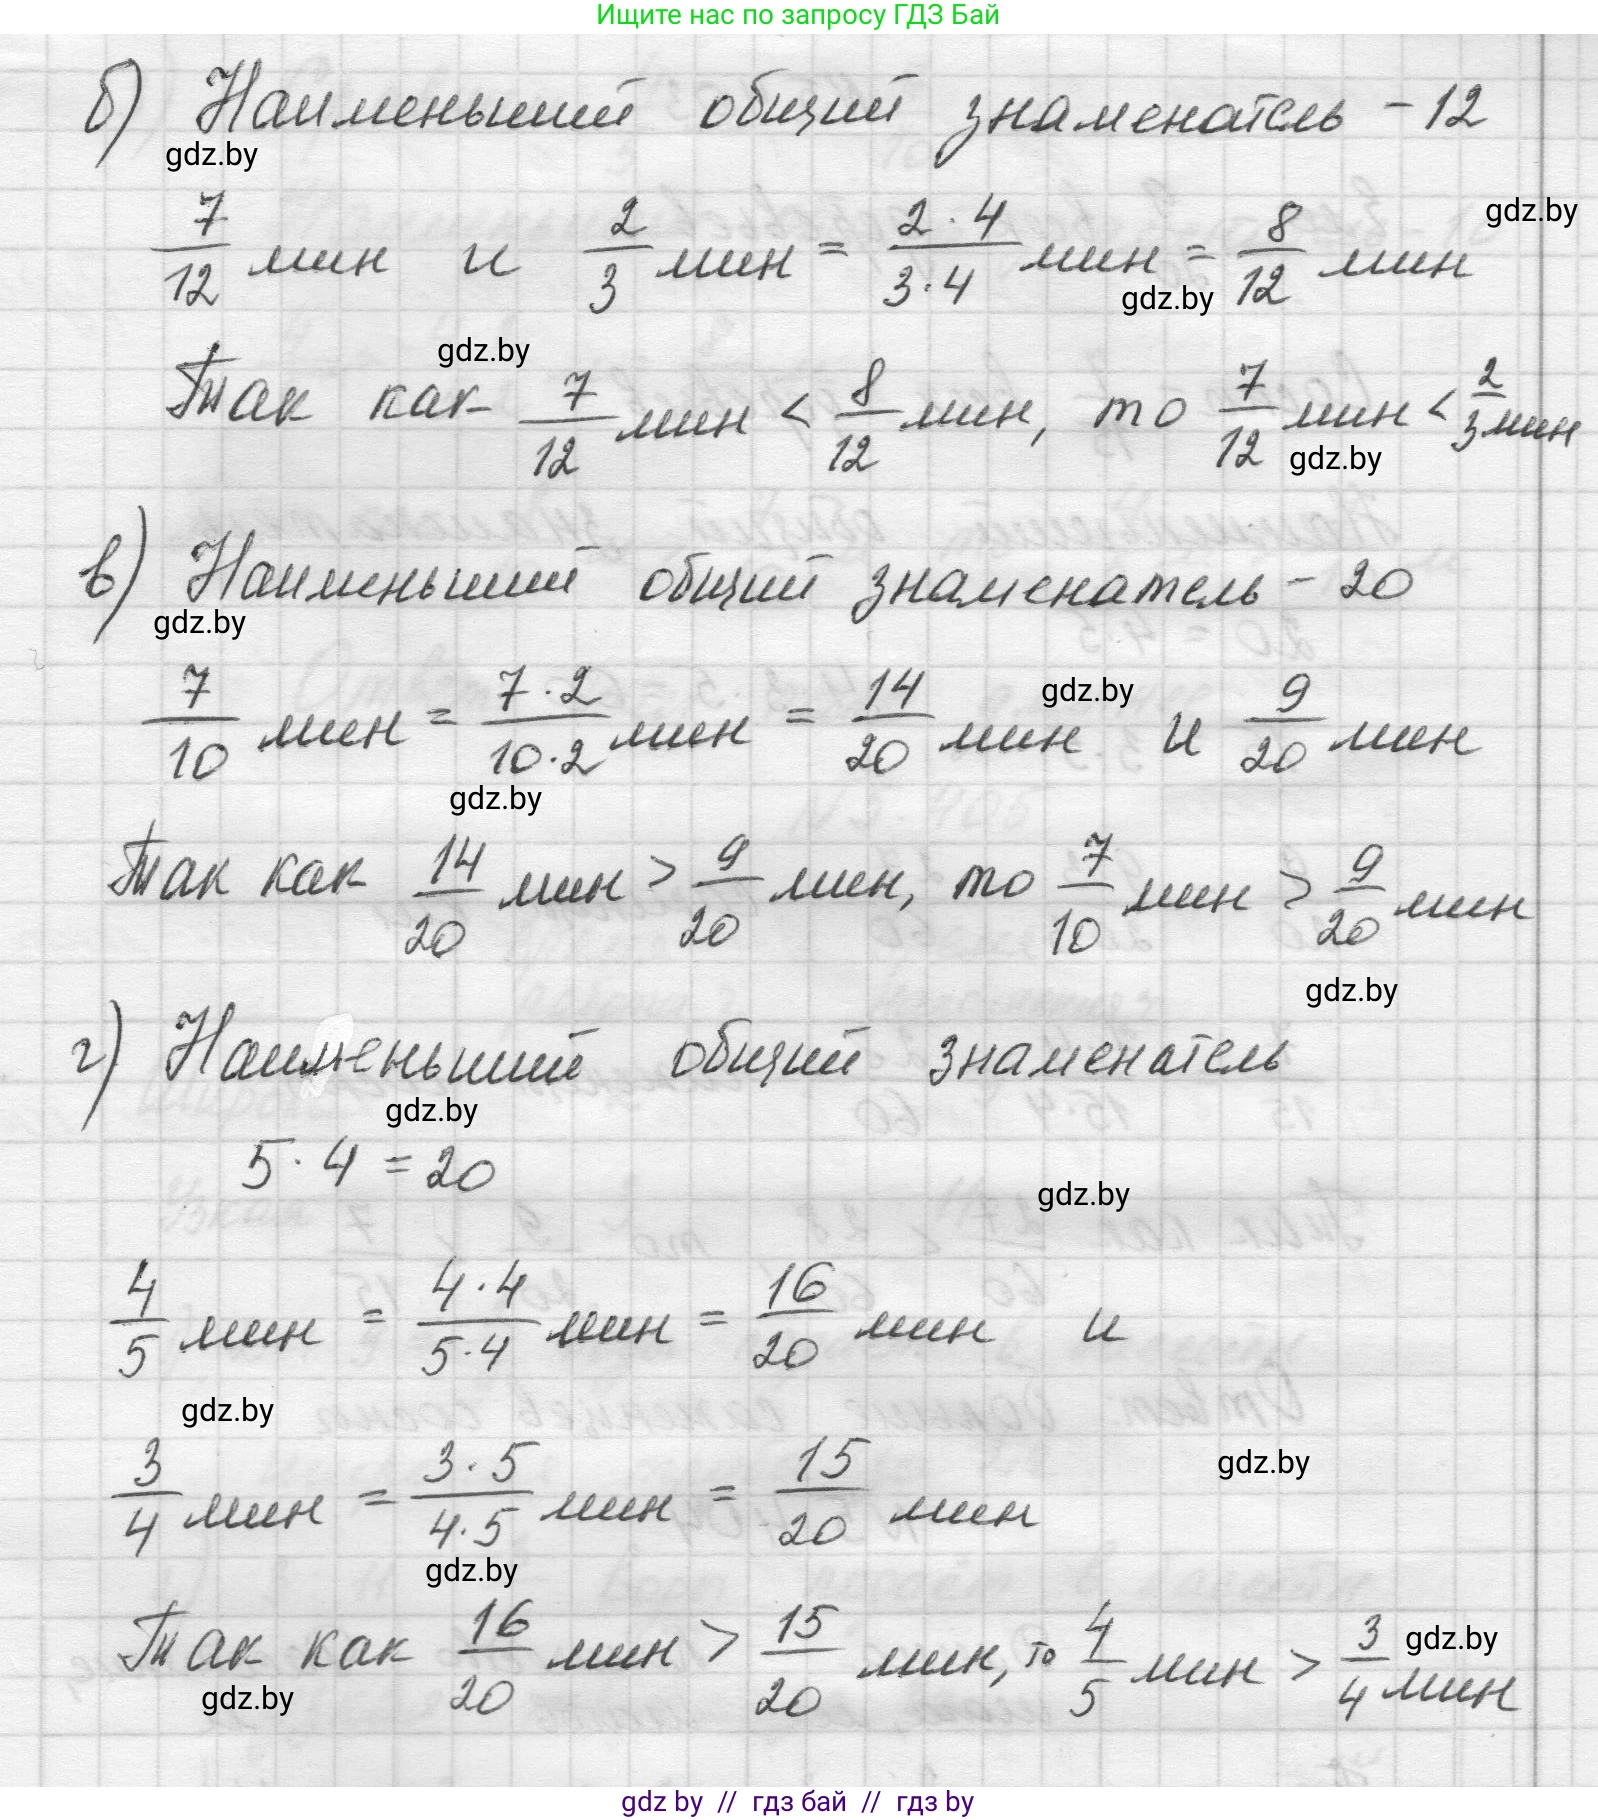 Ищите нас по запросу ГДЗ Бай
б) Наименьший общий знаменатель - 12
gdz.by
7/12 мин и 2/3 мин = 2·4/3·4 мин = 8/12 мин
gdz.by
gdz.by
gdz.by
Так как 7/12 мин < 8/12 мин, то 7/12 мин < 2/3 мин
gdz.by
в) Наименьший общий знаменатель - 20
gdz.by
7/10 мин = 7·2/10·2 мин = 14/20 мин и 9/20 мин
gdz.by
gdz.by
Так как 14/20 мин > 9/20 мин, то 7/10 мин > 9/20 мин
gdz.by
г) Наименьший общий знаменатель
gdz.by
5·4 = 20
gdz.by
4/5 мин = 4·4/5·4 мин = 16/20 мин и
gdz.by
3/4 мин = 3·5/4·5 мин = 15/20 мин
gdz.by
gdz.by
Так как 16/20 мин > 15/20 мин, то 4/5 мин > 3/4 мин
gdz.by
gdz.by
gdz by // гдз бай // гдз by